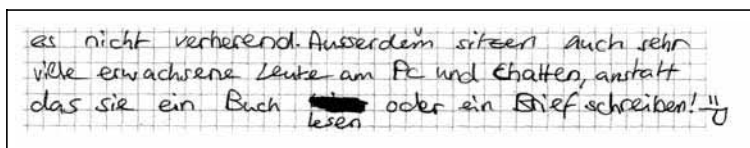 es nicht verherend. Ausserdem sitzen auch sehr
viele erwachsene Leute am Pc und Chatten, anstatt
das sie ein Buch lesen oder ein Brief schreiben! =D